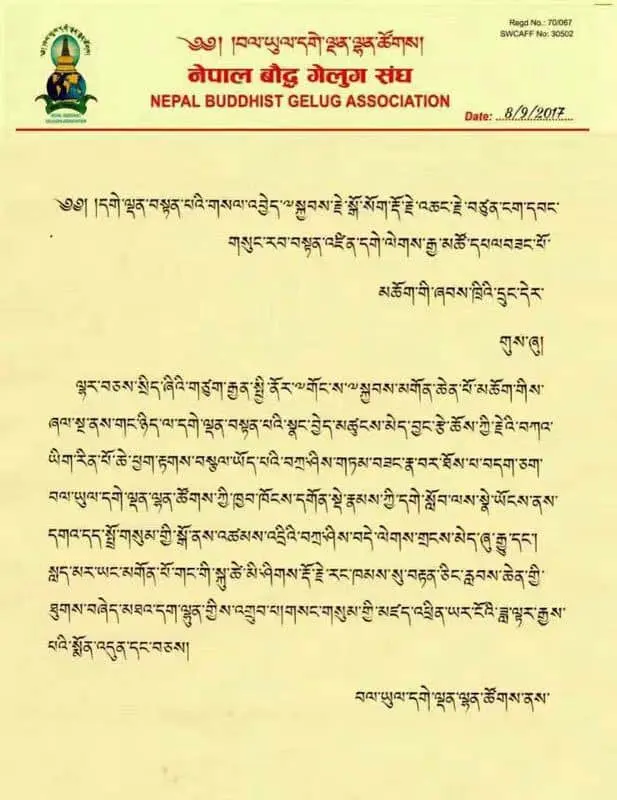 Regd No.: 70/067
SWCAFF No: 30502
༄༅། །བལ་ཡུལ་དགེ་ལྡན་ལྷན་ཚོགས།
नेपाल बौद्ध गेलुग संघ
NEPAL BUDDHIST GELUG ASSOCIATION
Date: 8/9/2017
༄༅། །དགེ་ལྡན་བསྟན་པའི་གསལ་འབྱེད་༧སྐྱབས་རྗེ་སྒོ་སོག་རྡོ་རྗེ་འཆང་རྗེ་བཙུན་ངག་དབང་
གསུང་རབ་བསྟན་འཛིན་དགེ་ལེགས་རྒྱ་མཚོ་དཔལ་བཟང་པོ་
མཆོག་གི་ཞབས་ཁྲིའི་དྲུང་དེར་
གུས་ཞུ།
ལྷར་བཅས་སྲིད་ཞིའི་གཙུག་རྒྱན་སྤྱི་ནོར་༧གོང་ས་༧སྐྱབས་མགོན་ཆེན་པོ་མཆོག་གིས་
ཞལ་སྔ་ནས་གང་ཉིད་ལ་དགེ་ལྡན་བསྟན་པའི་སྣང་བྱེད་མཚུངས་མེད་བྱང་རྩེ་ཆོས་ཀྱི་རྗེའི་བཀའ་
ཡིག་རིན་པོ་ཆེ་ཕྱག་རྟགས་བསྩལ་ཡོད་པའི་བཀྲ་ཤིས་གཏམ་བཟང་རྣ་བར་ཐོས་པ་བདག་ཅག་
བལ་ཡུལ་དགེ་ལྡན་ལྷན་ཚོགས་ཀྱི་ཁྱབ་ཁོངས་དགོན་སྡེ་རྣམས་ཀྱི་དགེ་སློབ་ལས་སྣེ་ཡོངས་ནས་
དགའ་དད་སྤྲོ་གསུམ་གྱི་སྒོ་ནས་འཚམས་འདྲིའི་བཀྲ་ཤིས་བདེ་ལེགས་གྲངས་མེད་ཞུ་རྒྱུ་དང་།
སླད་མར་ཡང་མགོན་པོ་གང་གི་སྐུ་ཚེ་མི་ཤིགས་རྡོ་རྗེ་རང་ཁམས་སུ་བརྟན་ཅིང་རླབས་ཆེན་གྱི་
ཐུགས་བཞེད་མཐའ་དག་ལྷུན་གྱིས་འགྲུབ་པ།གསང་གསུམ་གྱི་མཛད་འཕྲིན་ཡར་ངོའི་ཟླ་ལྟར་རྒྱས་
པའི་སྨོན་འདུན་དང་བཅས།
བལ་ཡུལ་དགེ་ལྡན་ལྷན་ཚོགས་ནས་